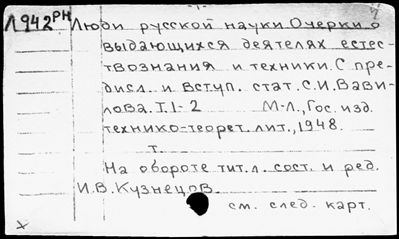 Л942РН Люди русской науки Очерки о
выдающихся деятелях естес-
твознания и техники. С пре-
дисл. и вступ. стат. С.И. Вави-
лова. Т.1-2 М-Л., Гос. изд.
технико-теорет. лит., 1948.
т.
На обороте тит. л. сост. и ред.
И.В. Кузнецов.
см. след. карт.